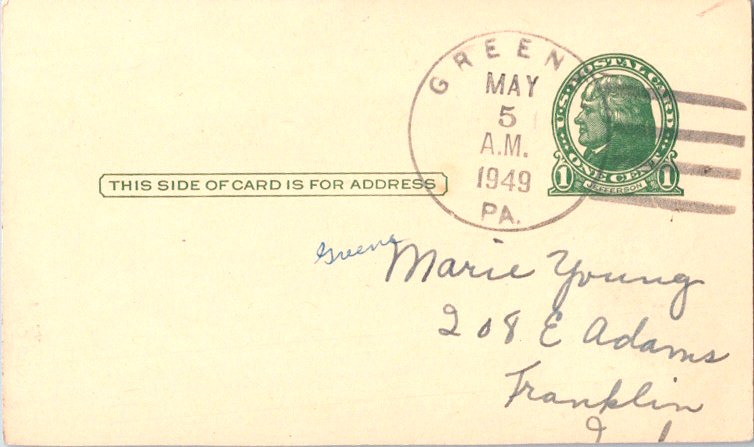 GREENE
MAY
5
A.M.
1949
PA.
U.S. POSTAL CARD
ONE CENT
1 JEFFERSON 1
THIS SIDE OF CARD IS FOR ADDRESS
Greene
Marie Young
208 E Adams
Franklin